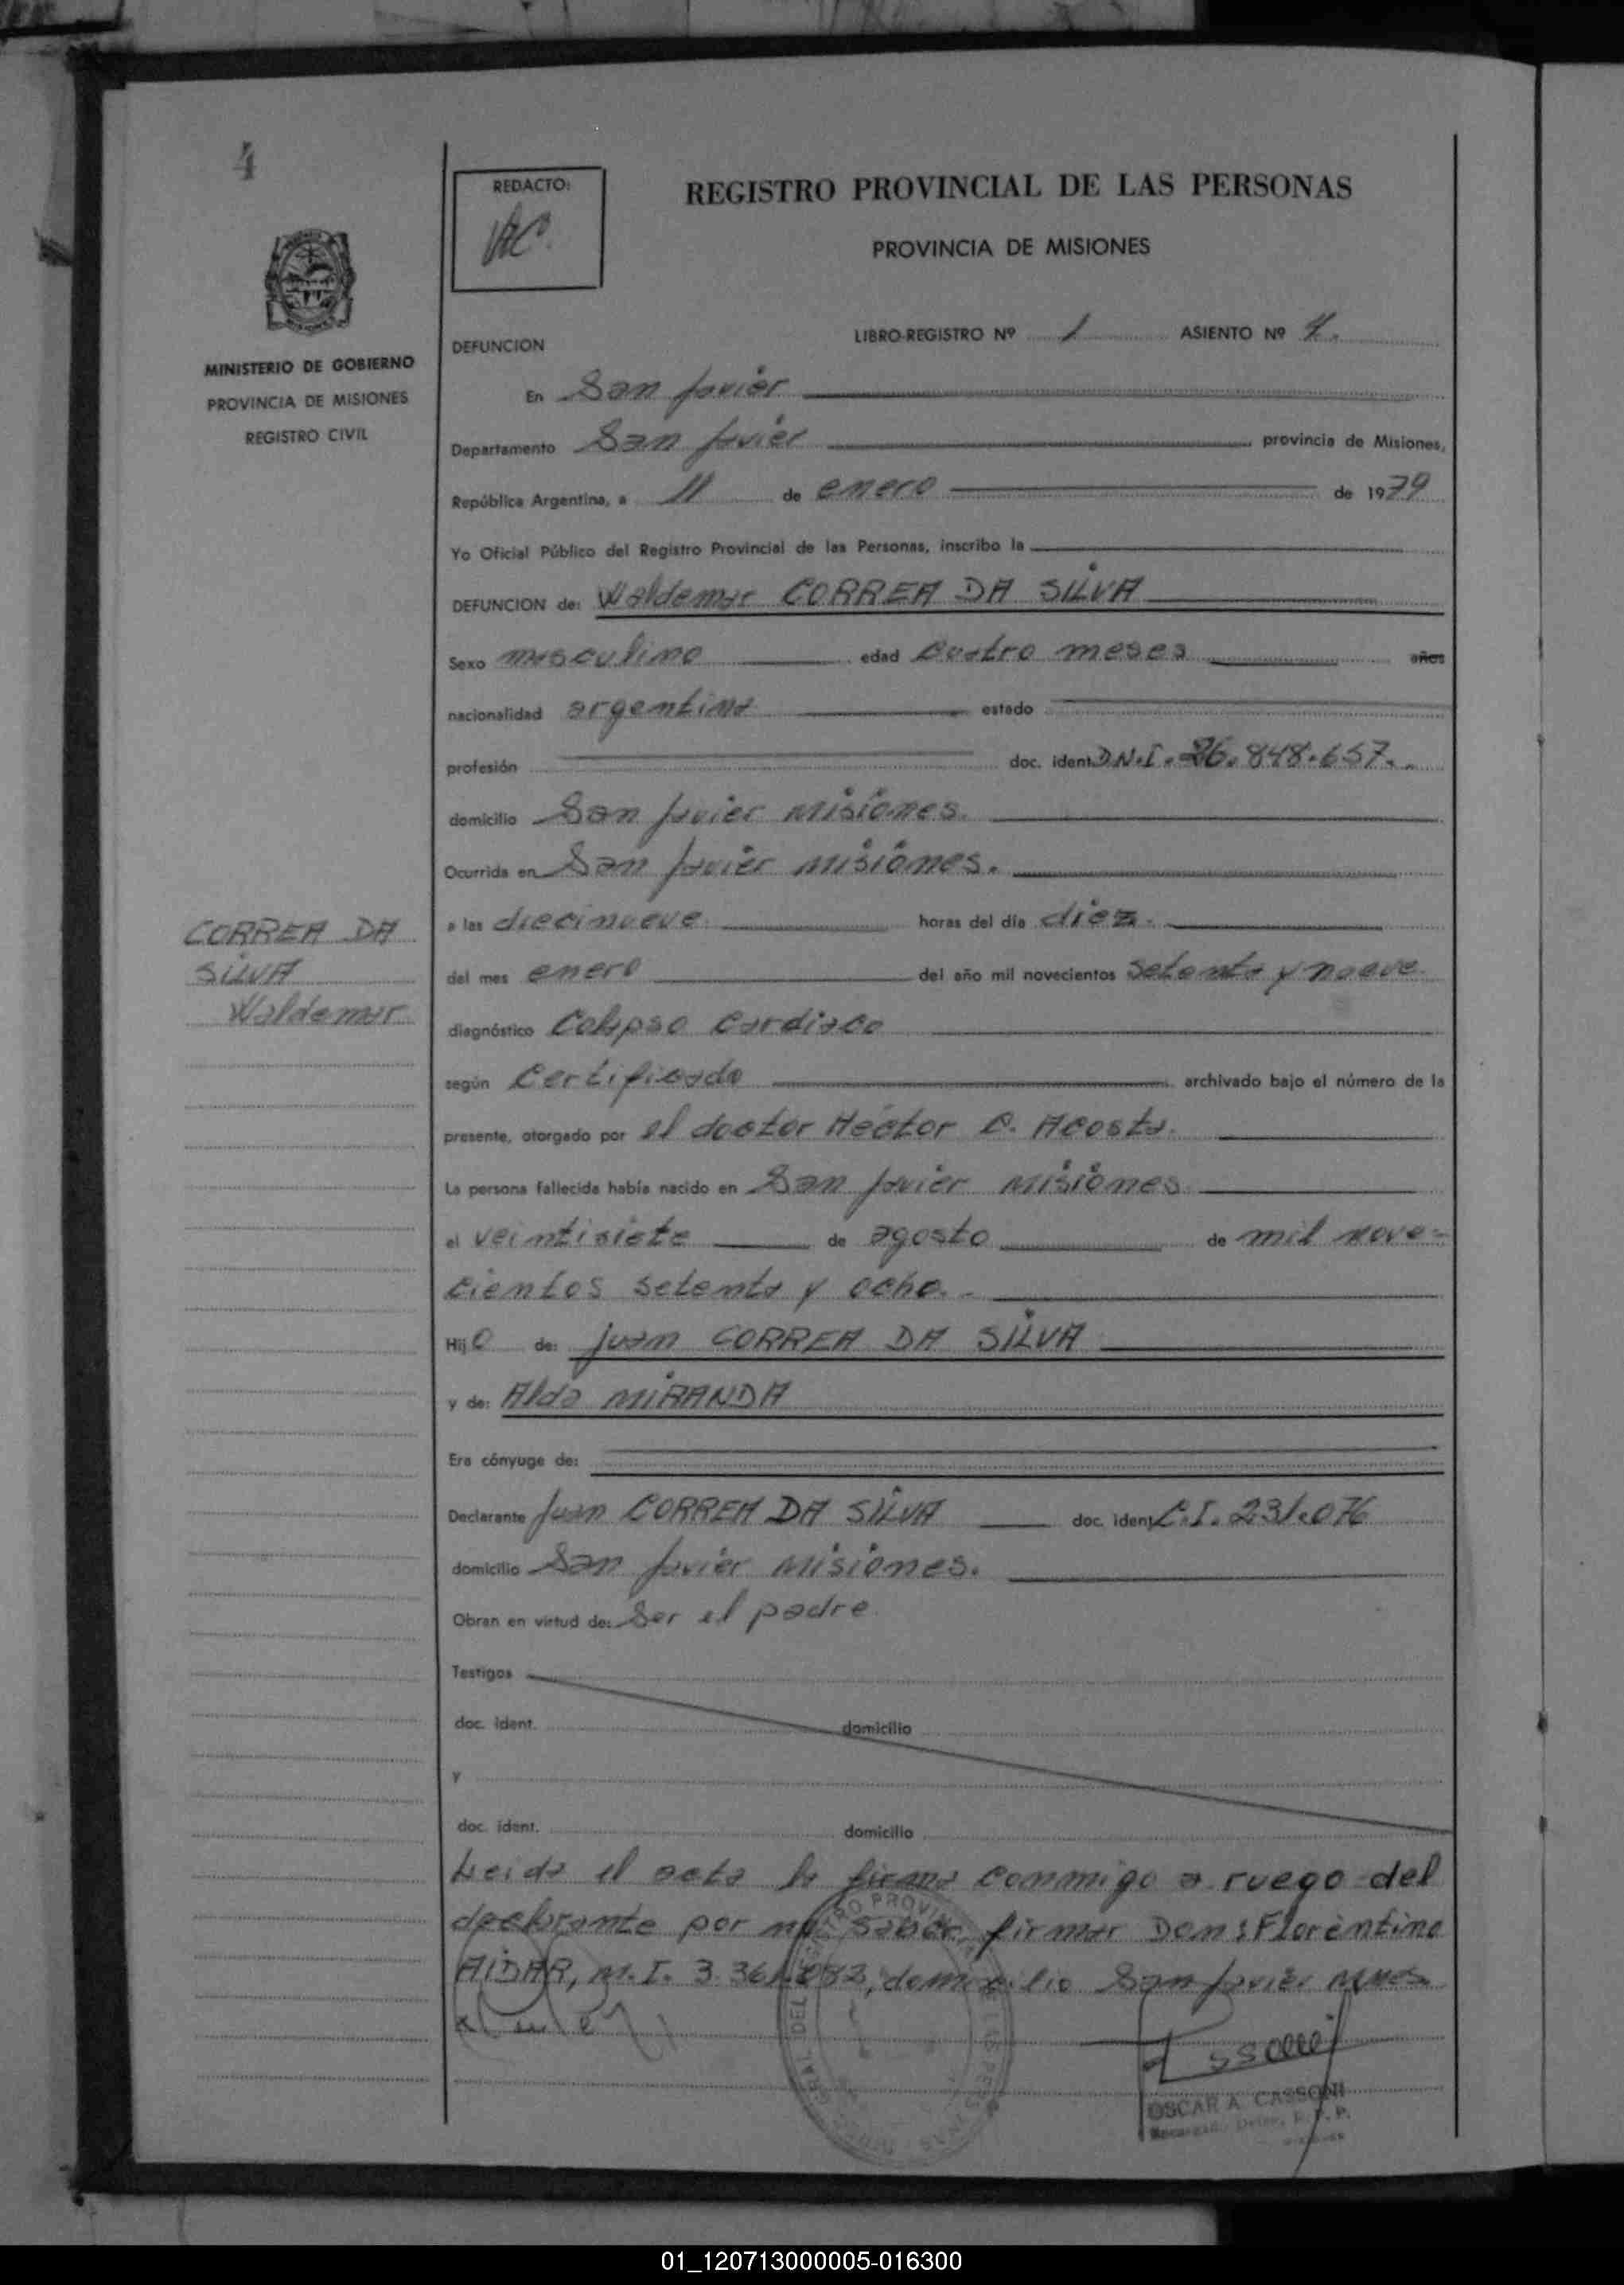 4
REDACTO:
REGISTRO PROVINCIAL DE LAS PERSONAS
PROVINCIA DE MISIONES
MINISTERIO DE GOBIERNO
PROVINCIA DE MISIONES
REGISTRO CIVIL
DEFUNCION
LIBRO-REGISTRO Nº 1 ASIENTO Nº 4.
En San Javier
Departamento San Javier provincia de Misiones,
República Argentina, a 11 de enero de 1979
Yo Oficial Público del Registro Provincial de las Personas, inscribo la
DEFUNCION de: Waldemar CORREA DA SILVA
Sexo masculino edad cuatro meses años
nacionalidad argentina estado
profesión doc. ident. D.N.I. 26.848.657.
domicilio San Javier Misiones.
Ocurrida en San Javier Misiones.
a las diecinueve horas del día diez.
del mes enero del año mil novecientos setenta y nueve
diagnóstico Colapso Cardiaco
según Certificado archivado bajo el número de la
presente, otorgado por el doctor Héctor C. Acosta.
La persona fallecida había nacido en San Javier Misiones
el veintisiete de agosto de mil nove-
cientos setenta y ocho.-
Hijo de: Juan CORREA DA SILVA
y de: Alda MIRANDA
Era cónyuge de:
Declarante Juan CORREA DA SILVA doc. ident. C.I. 231.076
domicilio San Javier Misiones.
Obran en virtud de: Ser el padre
Testigos
doc. ident. domicilio
y
doc. ident. domicilio
Leida el acta la firma conmigo a ruego del
declarante por no saber firmar Don: Florentino
AIDAR, M.I. 3.361. domicilio San Javier Mnes.
OSCAR A. CASSONI
CORREA DA
SILVA
Waldemar
01_120713000005-016300